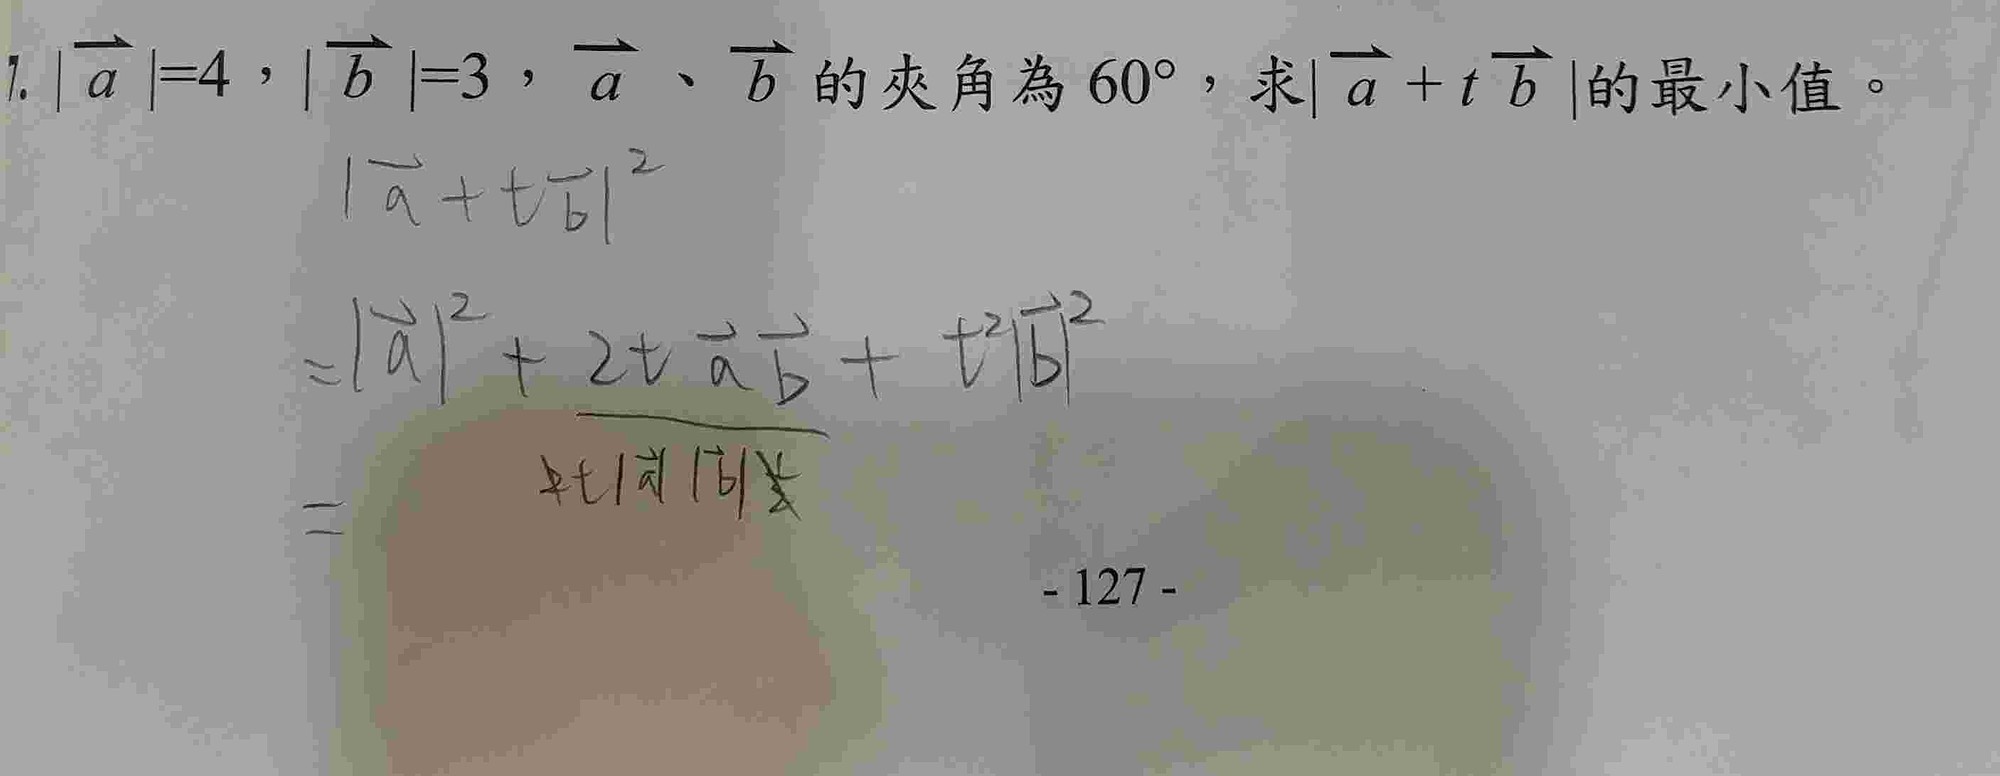 1. |a⃗|=4，|b⃗|=3，a⃗、b⃗的夾角為60°，求|a⃗+t b⃗|的最小值。
|a⃗+tb⃗|²
=|a⃗|²+2t a⃗ b⃗+t²|b⃗|²
t|a⃗||b⃗|
=
- 127 -